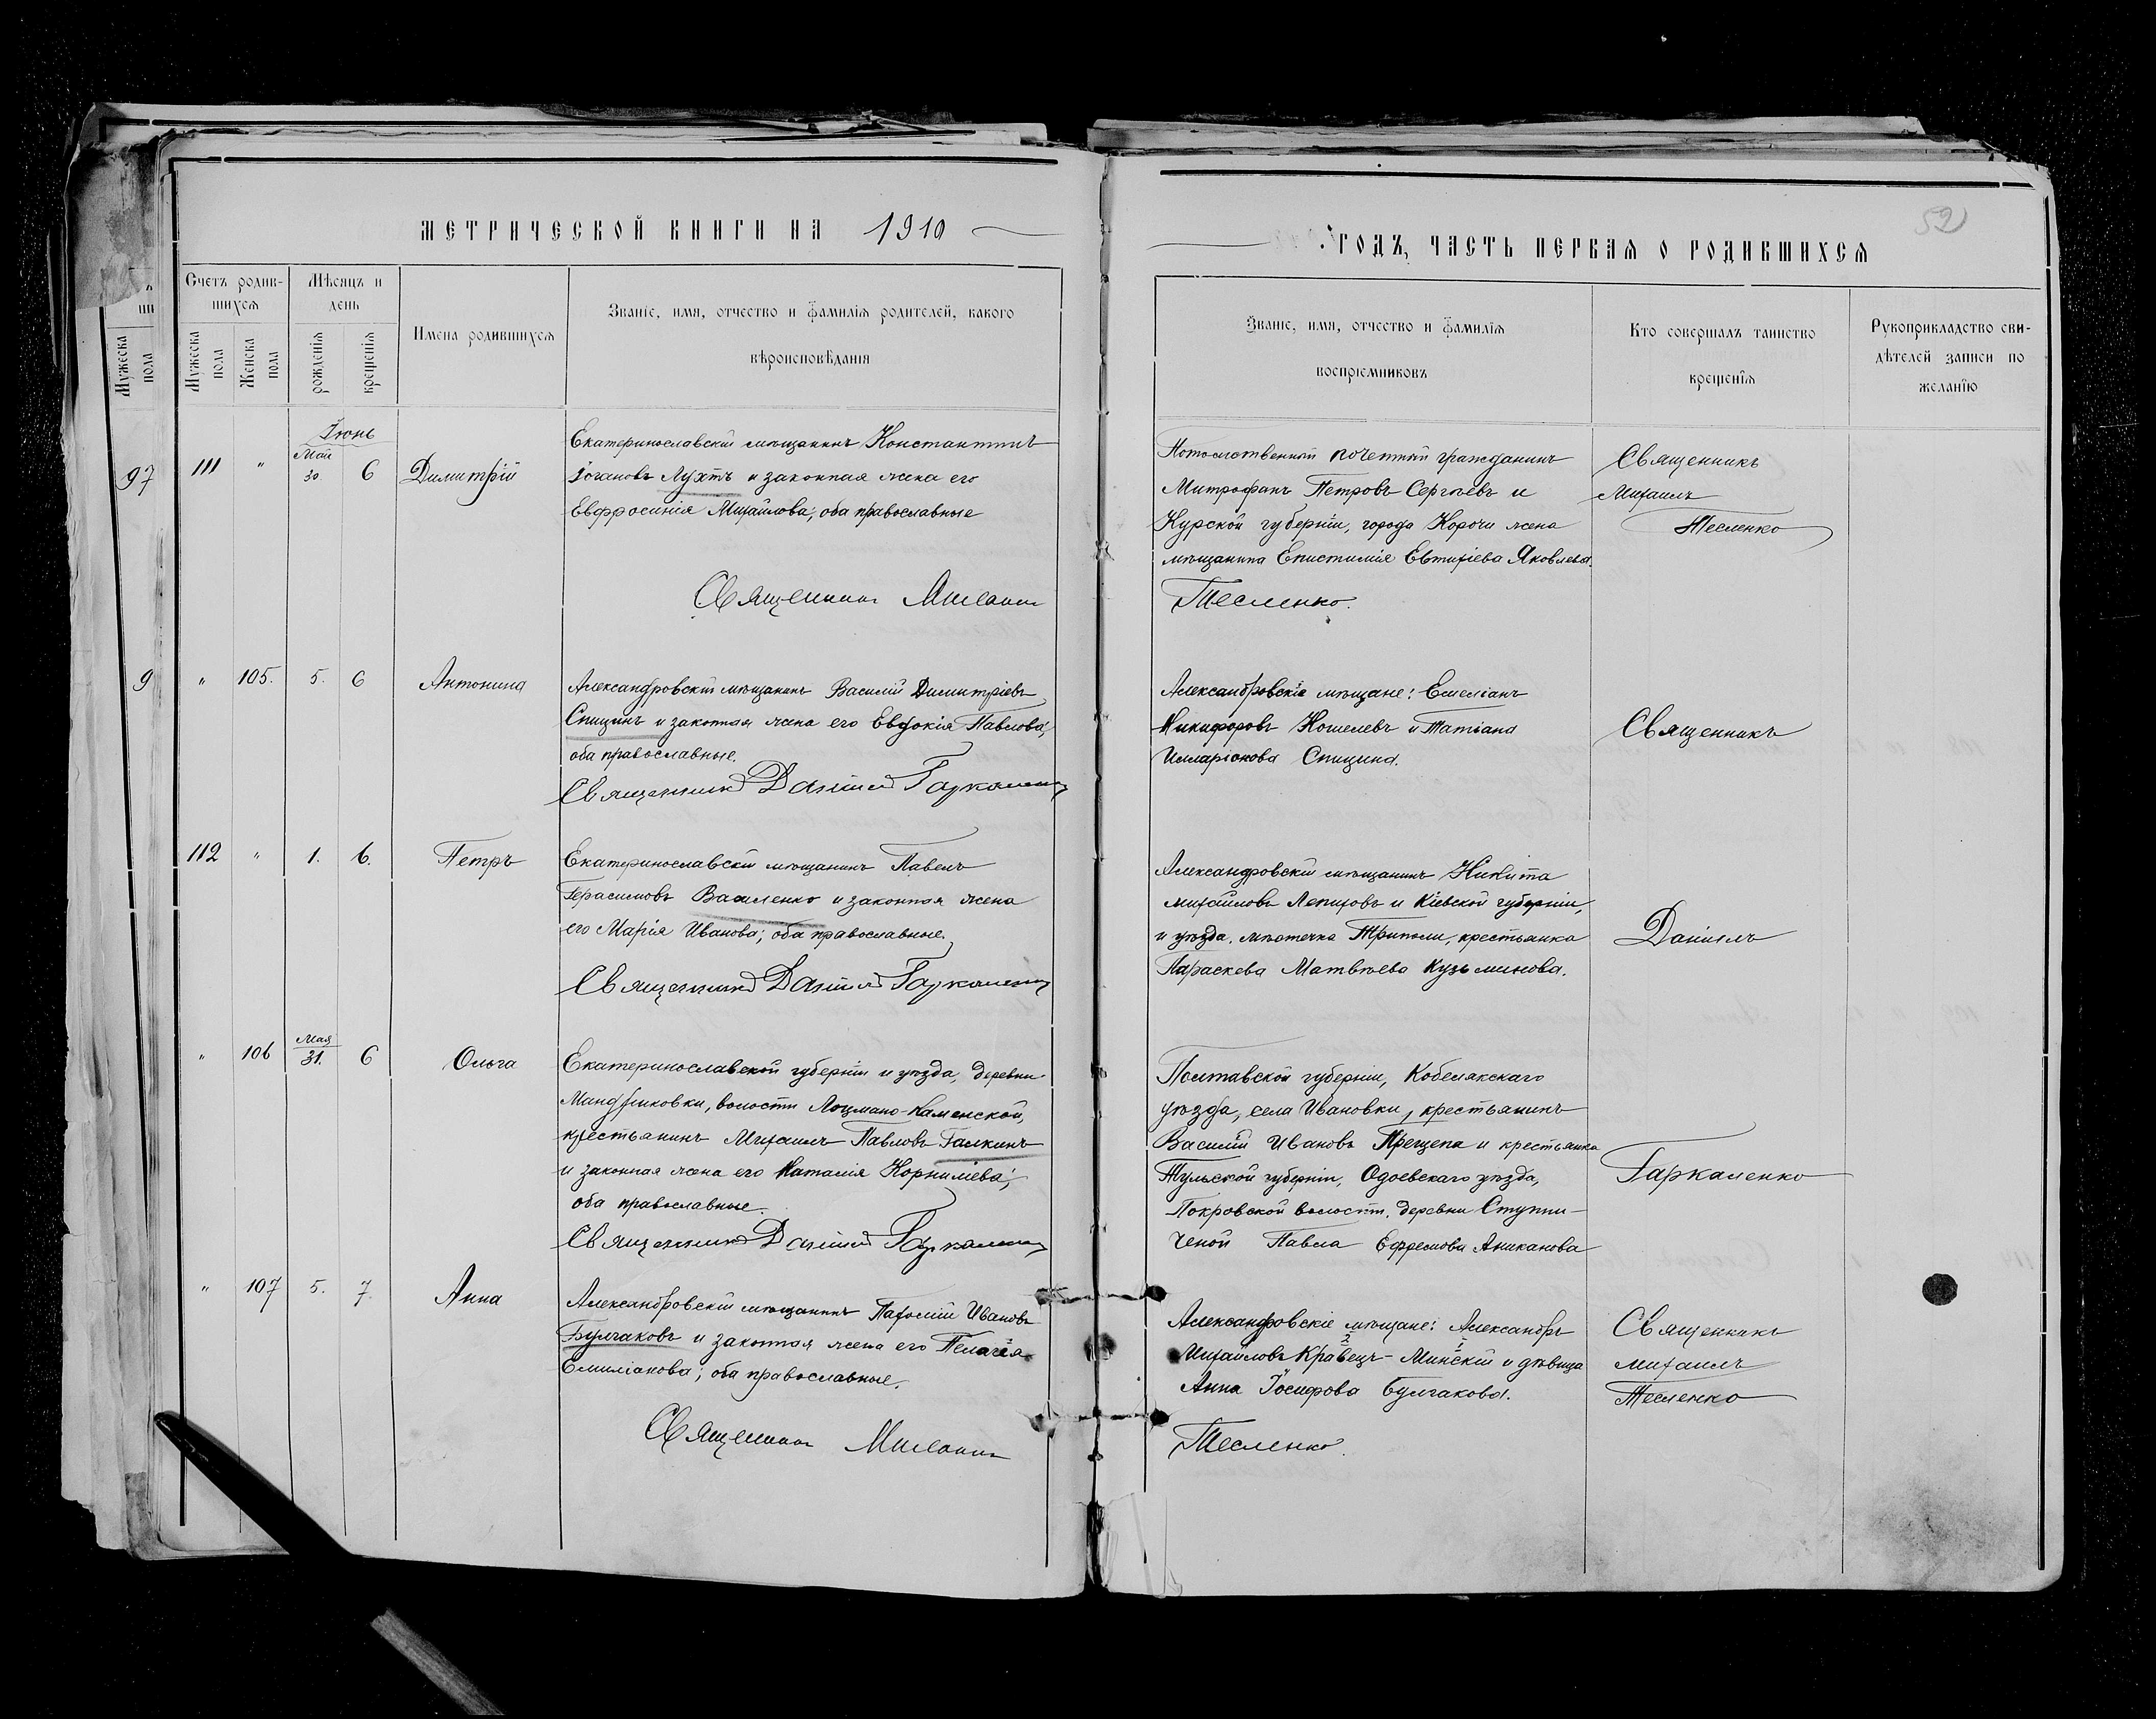 МЕТРИЧЕСКОЙ КНИГИ НА 1910
Счетъ родившихся
Мѣсяцъ и день
Имена родившихся
Званіе, имя, отчество и фамилія родителей, какого
вѣроисповѣданія
Мужеска пола
Мужеска пола
Женска пола
рожденія
крещенія
Іюнь
97
111 " Мая 30. 6 Димитрій
Екатеринославскій мѣщанинъ Константинъ
Іогановъ Лухтъ и законная жена его
Евфросинія Михайлова; оба православные
Священникъ Михаилъ
9
" 105. 5. 6 Антонина
Александровскій мѣщанинъ Василій Димитріевъ
Спицинъ и законная жена его Евдокія Павлова;
оба православные.
Священникъ Даніилъ Гаркаленко
112 " 1. 6. Петръ
Екатеринославскій мѣщанинъ Павелъ
Герасимовъ Василенко и законная жена
его Марія Иванова; оба православные.
Священникъ Даніилъ Гаркаленко
" 106 Мая 31. 6 Ольга
Екатеринославской губерніи и уѣзда, деревни
Мандрыковки, волости Лоцмано-Каменской,
крестьянинъ Михаилъ Павловъ Галкинъ
и законная жена его Наталія Корниліева;
оба православные.
Священникъ Даніилъ Гаркаленко
" 107 5. 7. Анна
Александровскій мѣщанинъ Пахомій Ивановъ
Булгаковъ и законная жена его Пелагія
Емиліанова; оба православные.
Священникъ Михаилъ
52
ГОДЪ, ЧАСТЬ ПЕРВАЯ О РОДИВШИХСЯ
Званіе, имя, отчество и фамилія
воспріемниковъ
Кто совершалъ таинство
крещенія
Рукоприкладство сви-
дѣтелей записи по
желанію
Потомственный почетный гражданинъ
Митрофанъ Петровъ Сергѣевъ и
Курской губерніи, города Корочи жена
мѣщанина Епистимія Евтихіева Яковлева.
Тесленко.
Священникъ
Михаилъ
Тесленко
Александровскіе мѣщане: Емеліанъ
Никифоровъ Кошелевъ и Татіана
Илларіонова Спицина.
Священникъ
Александровскій мѣщанинъ Никита
Михайловъ Лепиховъ и Кіевской губерніи,
и уѣзда, мѣстечка Триполи, крестьянка
Параскева Матвѣева Кузьминова.
Даніилъ
Полтавской губерніи, Кобелякскаго
уѣзда, села Ивановки, крестьянинъ
Василій Ивановъ Прещепа и крестьянка
Тульской губерніи, Одоевскаго уѣзда,
Покровской волости, деревни Ступи-
ченой Павла Ефремова Аниканова
Гаркаленко
Александровскіе мѣщане: Александръ
Михайловъ Кравецъ-Минскій и дѣвица
Анна Іосифова Булгакова.
Тесленко.
Священникъ
Михаилъ
Тесленко